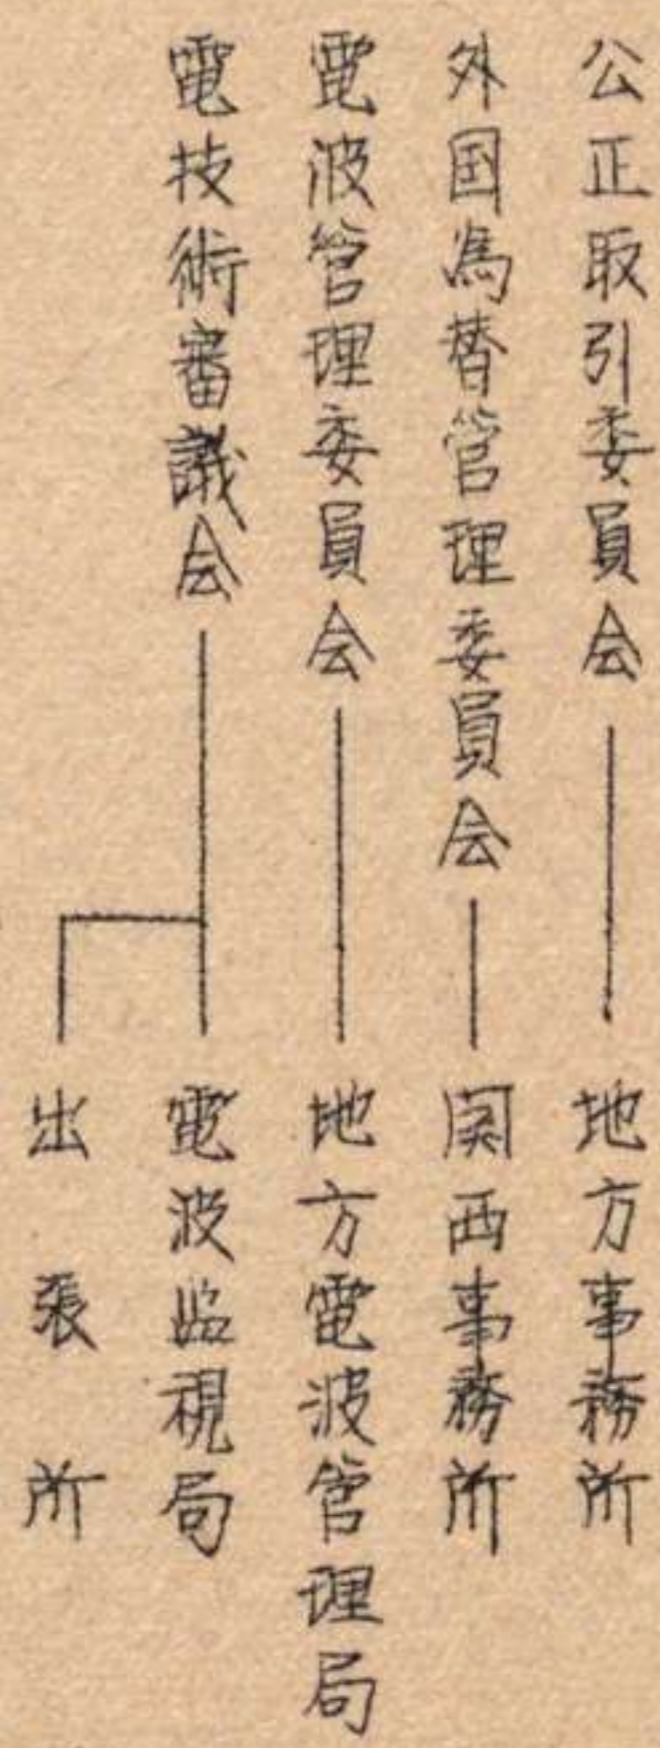 公正取引委員会 地方事務所
外国為替管理委員会 関西事務所
電波管理委員会 地方電波管理局
電技術審議会 電波監視局
出張所